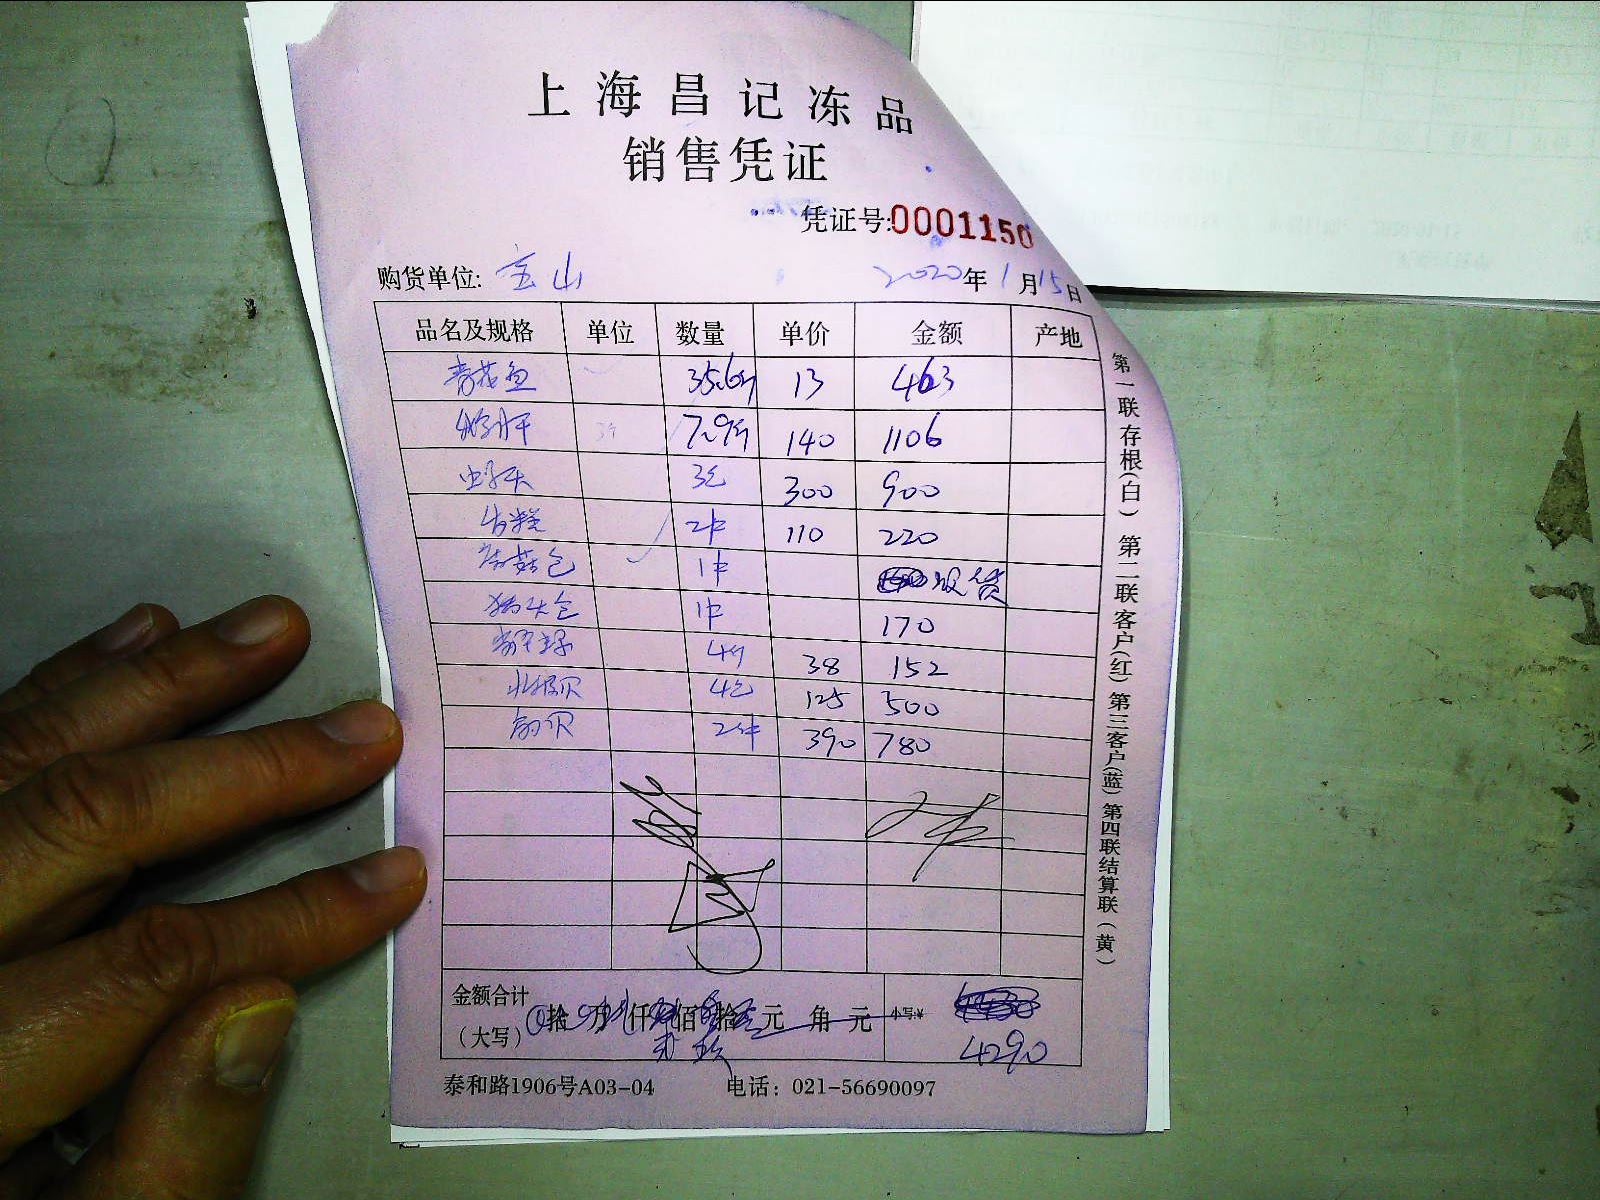 上海昌记冻品
销售凭证
凭证号:0001150
购货单位: 宝山 2020年1月15日
品名及规格 单位 数量 单价 金额 产地
青花鱼 35.6斤 13 463
7.9斤 140 1106
3包 300 900
2件 110 220
香菇包 1件 没货
猪头包 1件 170
4斤 38 152
北极贝 4包 125 500
扇贝 2件 390 780
金额合计
(大写) 拾 万 仟 佰 拾 元 角 元 小写:¥
4290
泰和路1906号A03-04 电话：021-56690097
第一联存根(白) 第二联客户(红) 第三客户(蓝) 第四联结算联(黄)